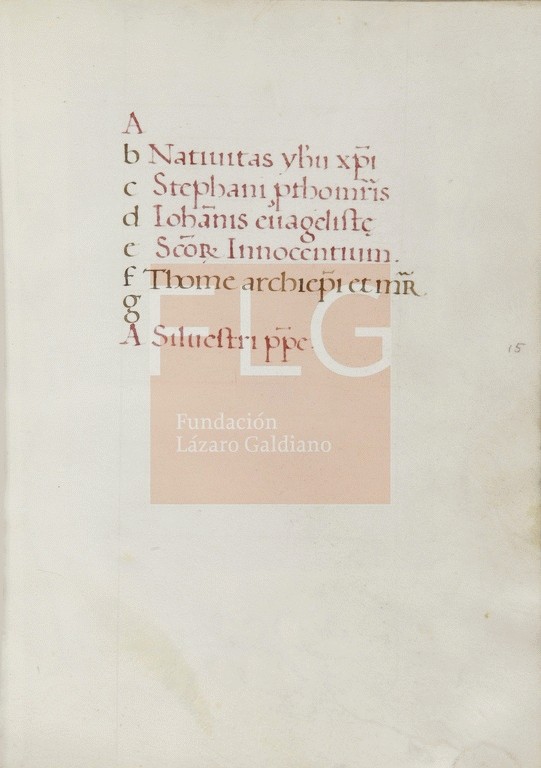 A
b Natiuitas yhu xp̄i
c Stephani ꝓthomr̄is
d Ioha͞nis eua͞gelistę
e Sc͞oꝝ Innocentium.
f Thome archiep̄i et mr̄̄.
g
A Siluestri pp̄e.
15
FLG
Fundación
Lázaro Galdiano